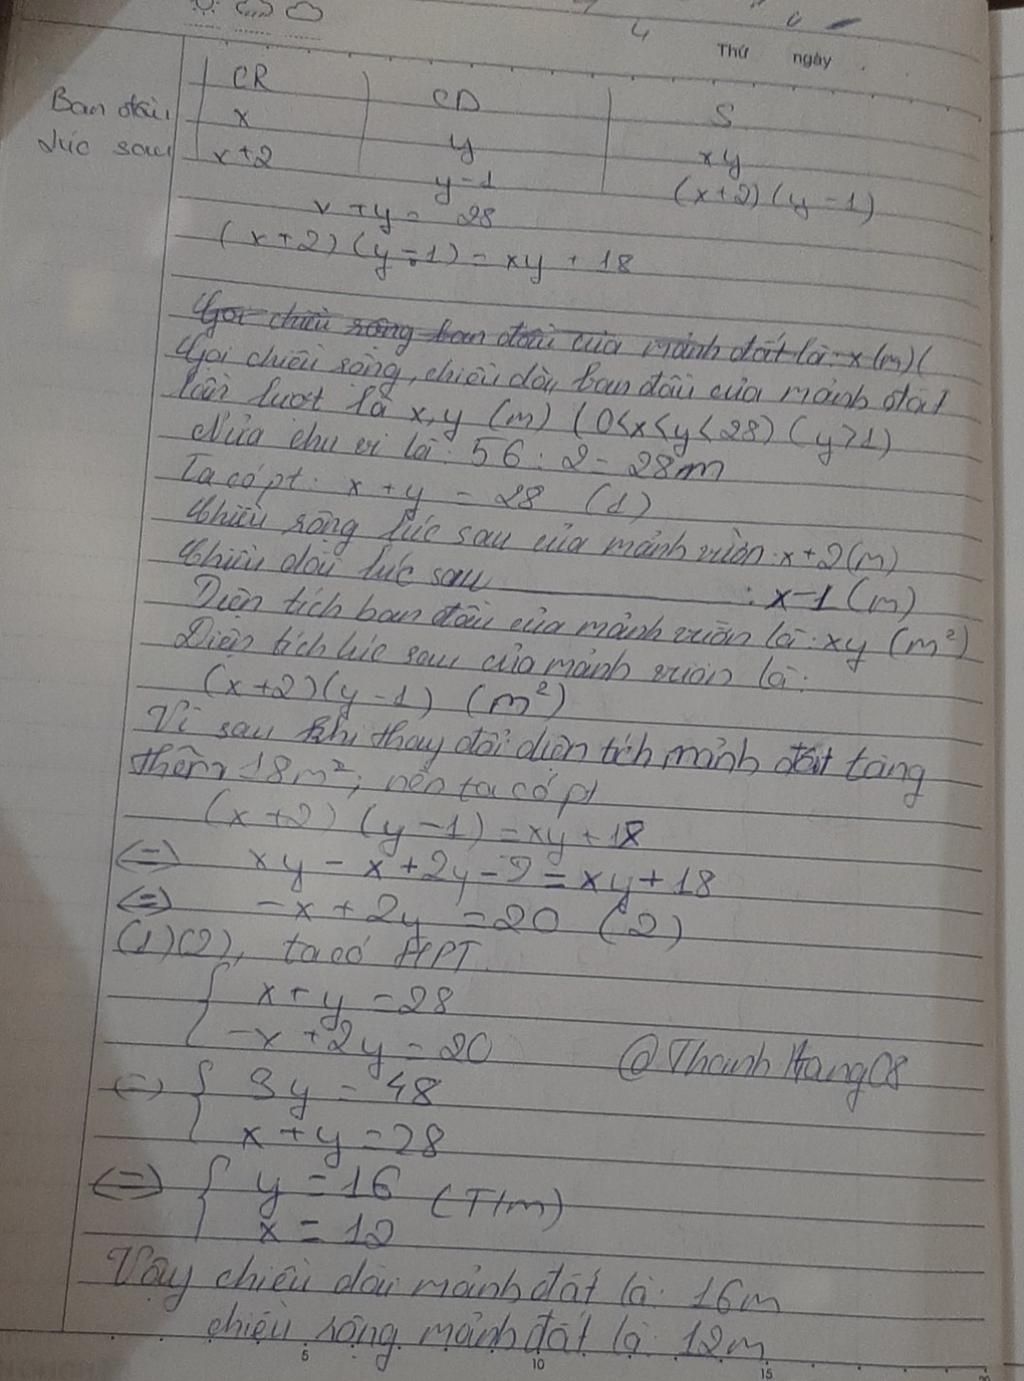 Thứ ngày
CR CD S
Ban đầu x y xy
Lúc sau x+2 y-1 (x+2)(y-1)
x+y= 28
(x+2)(y-1)=xy+18
Gọi chiều rộng ban đầu của mảnh đất là: x(m)(
Gọi chiều rộng, chiều dài, ban đầu của mảnh đất
lần lượt là x,y (m) (0<x<y<28) (y>1)
Nửa chu vi là: 56:2=28m
Ta có pt: x+y=28 (1)
Chiều rộng lúc sau của mảnh vườn: x+2(m)
Chiều dài lúc sau : x-1(m)
Diện tích ban đầu của mảnh vườn là: xy (m²)
Diện tích lúc sau của mảnh vườn là:
(x+2)(y-1) (m²)
Vì sau khi thay đổi diện tích mảnh đất tăng
thêm 18m²; nên ta có pt
(x+2)(y-1)=xy+18
<=> xy-x+2y-2=xy+18
<=> -x+2y=20 (2)
(1)(2), ta có HPT
{ x+y=28
-x+2y=20 @ThanhHang08
<=> { 3y=48
x+y=28
<=> { y=16 (T/m)
x=12
Vậy chiều dài mảnh đất là: 16m
chiều rộng mảnh đất là: 12m
5 10 15